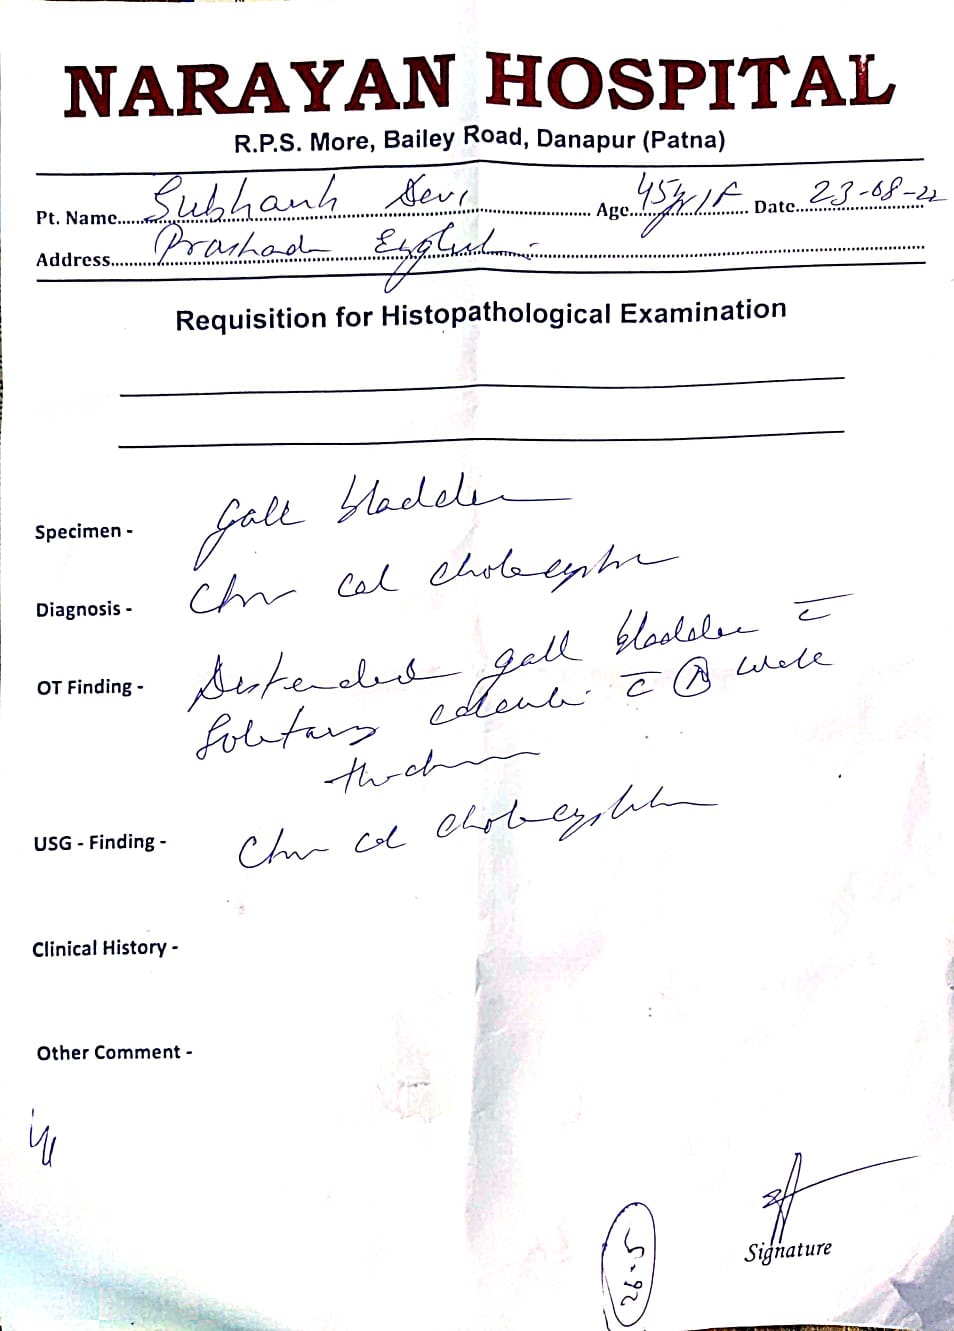 NARAYAN HOSPITAL
R.P.S. More, Bailey Road, Danapur (Patna)
Pt. Name Subhanh Devi Age 45y/F Date 23-08-22
Address Prashad
Requisition for Histopathological Examination
Specimen - Gall bladder
Diagnosis - Chr Cal Cholecystitis
OT Finding - Distended gall bladder c̄
Solitary calculi c̄ wall
USG - Finding - Chr Cal Cholecystitis
Clinical History -
Other Comment -
Signature